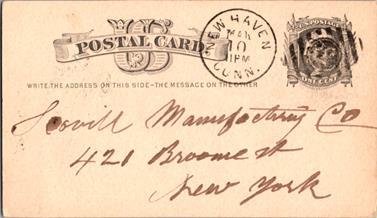 US
POSTAL CARD
NEW HAVEN
MAR
10
1PM
CONN.
U.S. POSTAGE
ONE CENT
WRITE THE ADDRESS ON THIS SIDE–THE MESSAGE ON THE OTHER
Scovill Manufacturing Co
421 Broome st
New York